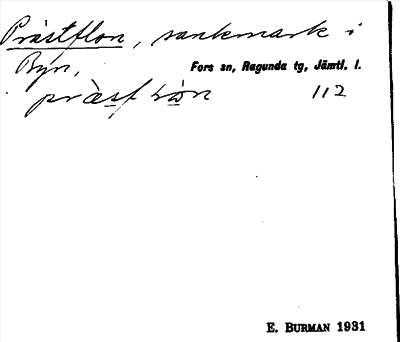 Prästflon, sankmark i
Byn, Fors sn, Ragunda tg, Jämtl. l.
112
E. BURMAN 1931